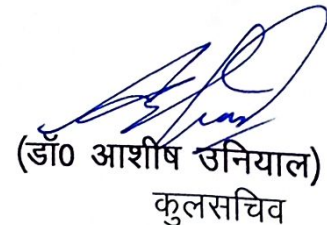 (डॉ0 आशीष उनियाल)
कुलसचिव